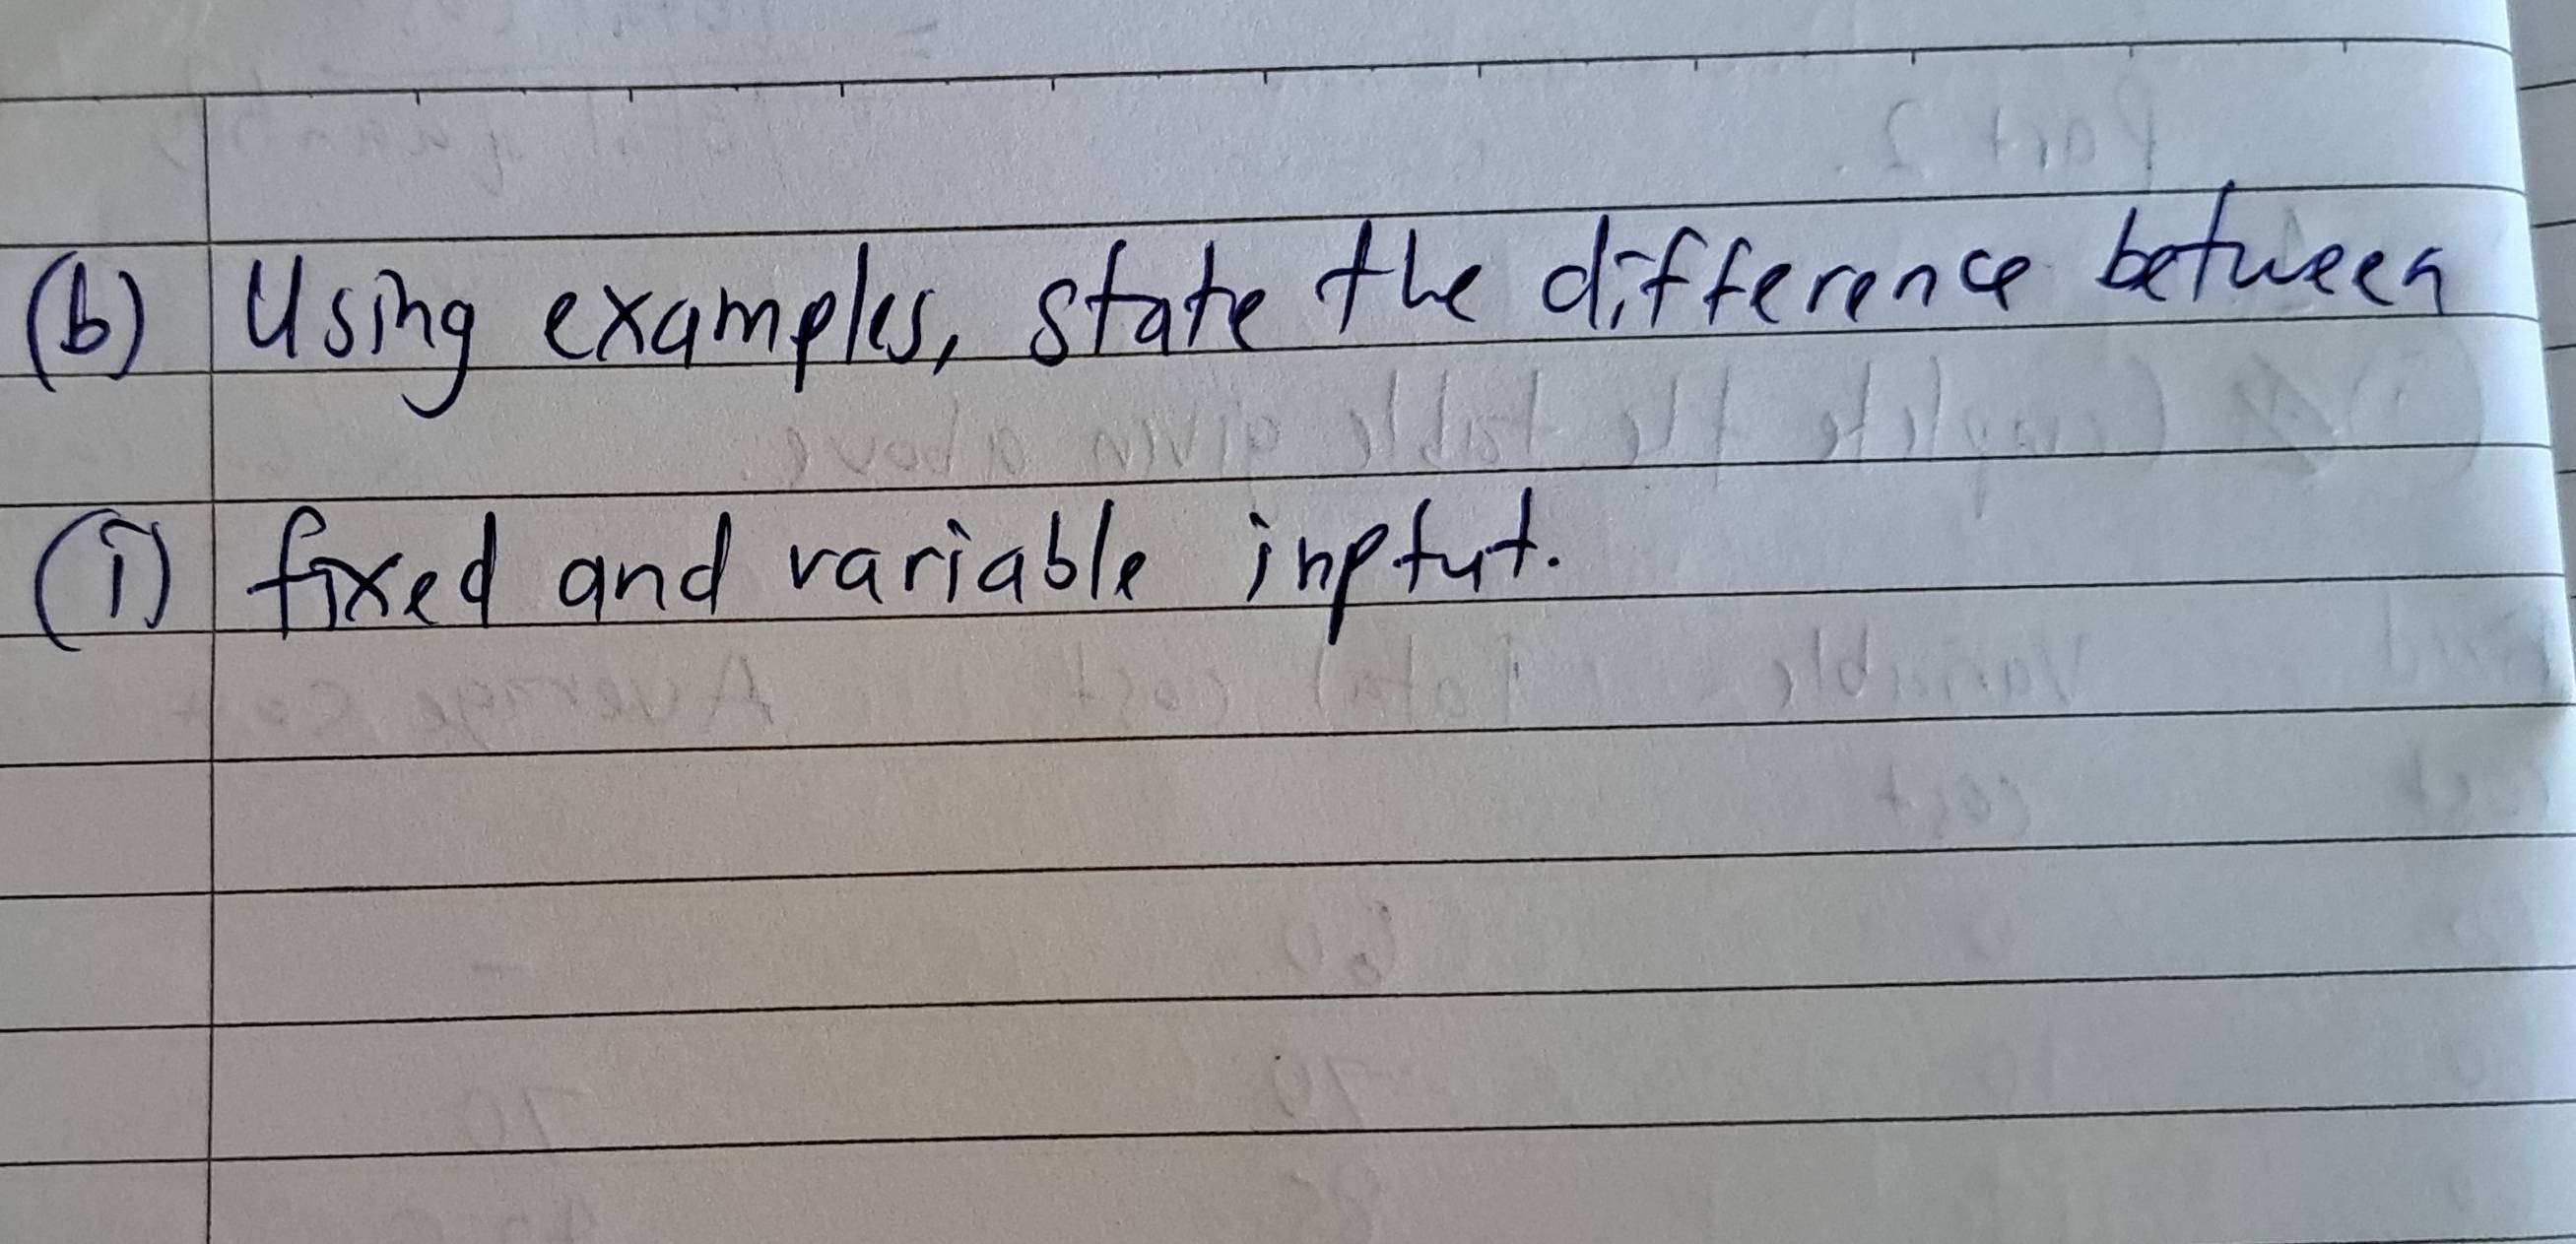 (b) Using examples, state the difference between
(i) fixed and variable inptut.